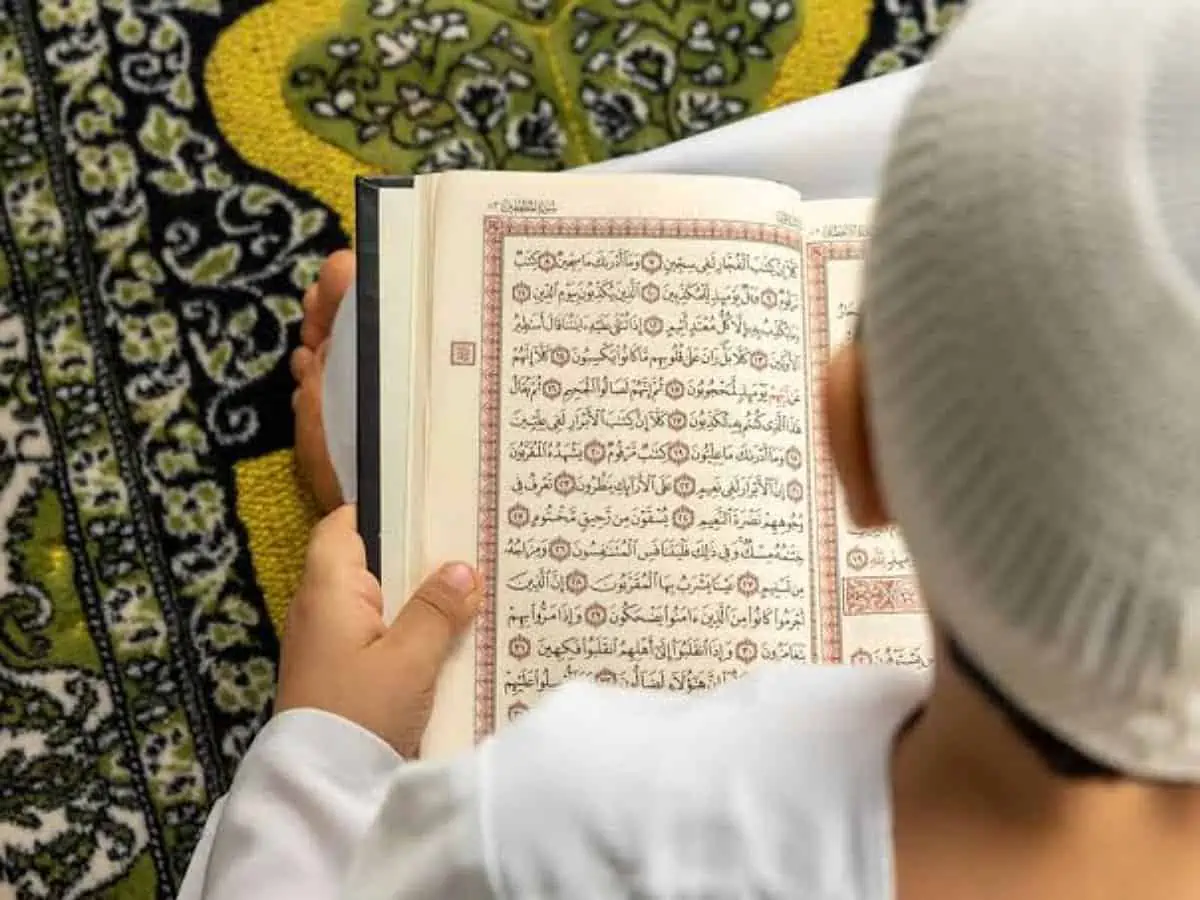 سُورَةُ المُطَفِّفِينَ ٨٣
كَلَّآ إِنَّ كِتَٰبَ ٱلْفُجَّارِ لَفِى سِجِّينٍ ٧ وَمَآ أَدْرَىٰكَ مَا سِجِّينٌ ٨ كِتَٰبٌ
مَّرْقُومٌ ٩ وَيْلٌ يَوْمَئِذٍ لِّلْمُكَذِّبِينَ ١٠ ٱلَّذِينَ يُكَذِّبُونَ بِيَوْمِ ٱلدِّينِ ١١
وَمَا يُكَذِّبُ بِهِۦٓ إِلَّا كُلُّ مُعْتَدٍ أَثِيمٍ ١٢ إِذَا تُتْلَىٰ عَلَيْهِ ءَايَٰتُنَا قَالَ أَسَٰطِيرُ
ٱلْأَوَّلِينَ ١٣ كَلَّا بَلْ رَانَ عَلَىٰ قُلُوبِهِم مَّا كَانُوا۟ يَكْسِبُونَ ١٤ كَلَّآ إِنَّهُمْ
عَن رَّبِّهِمْ يَوْمَئِذٍ لَّمَحْجُوبُونَ ١٥ ثُمَّ إِنَّهُمْ لَصَالُوا۟ ٱلْجَحِيمِ ١٦ ثُمَّ يُقَالُ
هَٰذَا ٱلَّذِى كُنتُم بِهِۦ تُكَذِّبُونَ ١٧ كَلَّآ إِنَّ كِتَٰبَ ٱلْأَبْرَارِ لَفِى عِلِّيِّينَ
١٨ وَمَآ أَدْرَىٰكَ مَا عِلِّيُّونَ ١٩ كِتَٰبٌ مَّرْقُومٌ ٢٠ يَشْهَدُهُ ٱلْمُقَرَّبُونَ
٢١ إِنَّ ٱلْأَبْرَارَ لَفِى نَعِيمٍ ٢٢ عَلَى ٱلْأَرَآئِكِ يَنظُرُونَ ٢٣ تَعْرِفُ فِى
وُجُوهِهِمْ نَضْرَةَ ٱلنَّعِيمِ ٢٤ يُسْقَوْنَ مِن رَّحِيقٍ مَّخْتُومٍ ٢٥
خِتَٰمُهُۥ مِسْكٌ وَفِى ذَٰلِكَ فَلْيَتَنَافَسِ ٱلْمُتَنَٰفِسُونَ ٢٦ وَمِزَاجُهُۥ
مِن تَسْنِيمٍ ٢٧ عَيْنًا يَشْرَبُ بِهَا ٱلْمُقَرَّبُونَ ٢٨ إِنَّ ٱلَّذِينَ
أَجْرَمُوا۟ كَانُوا۟ مِنَ ٱلَّذِينَ ءَامَنُوا۟ يَضْحَكُونَ ٢٩ وَإِذَا مَرُّوا۟ بِهِمْ
يَتَغَامَزُونَ ٣٠ وَإِذَا ٱنقَلَبُوٓا۟ إِلَىٰٓ أَهْلِهِمُ ٱنقَلَبُوا۟ فَكِهِينَ ٣١
إِنَّ هَٰٓؤُلَآءِ لَضَآلُّونَ ٣٢ وَمَآ أُرْسِلُوا۟ عَلَيْهِمْ
لِّلَّهِ ١٩